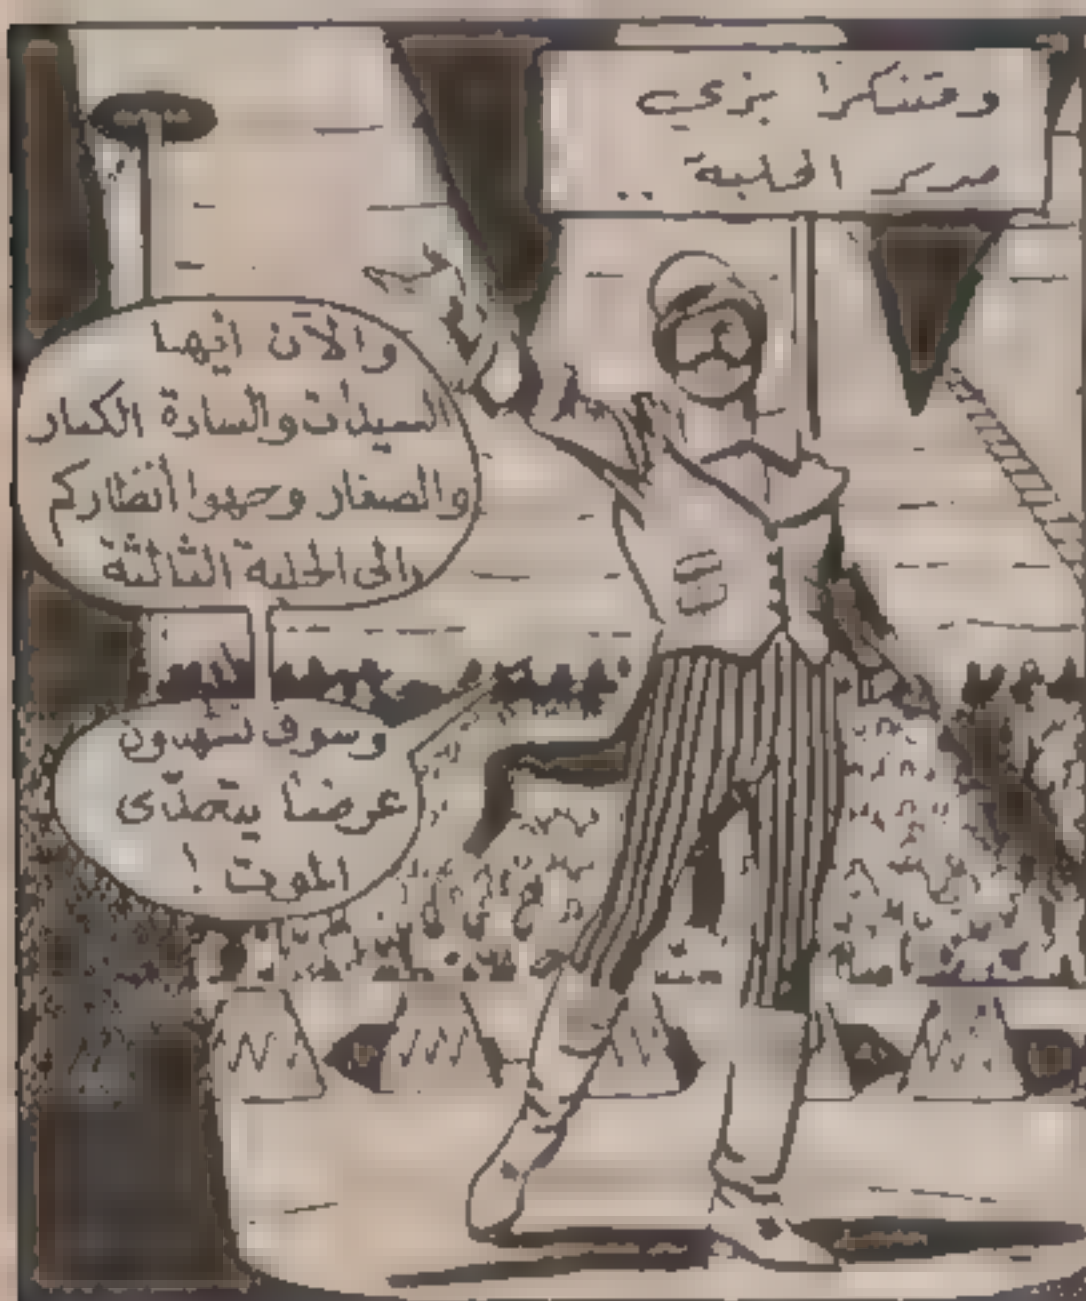 ومتنكرا بزي
مدير الحلبة ..
والآن أيها
السيدات والسادة الكبار
والصغار وجهوا أنظاركم
إلى الحلبة الثالثة
وسوف تشهدون
عرضا يتحدى
الموت !